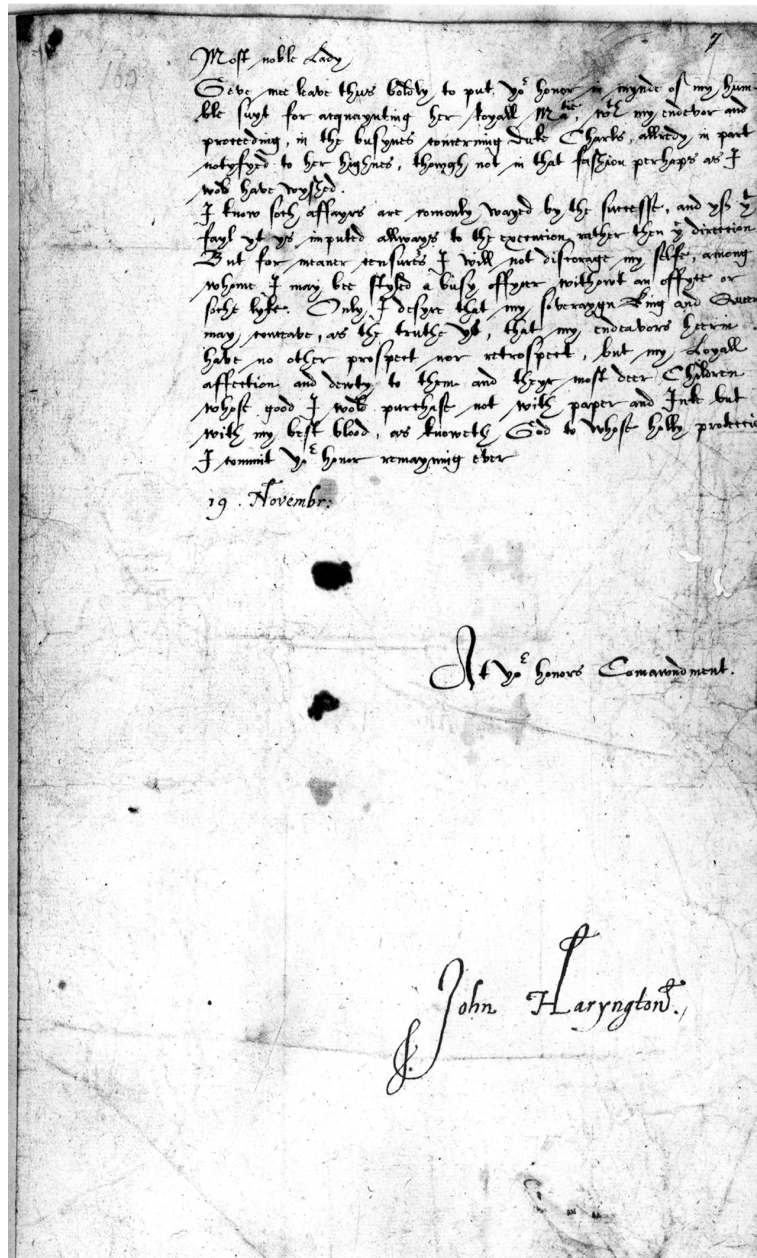 7
160
Most noble Lady
Geve mee leave thus boldly to put yor honor in mynde of my hum
ble suyt for acquaynting her Royall Matie, wth my endevor and
proceeding, in the busynes concerning Duke Charls, allredy in part
notyfyed to her highnes, thowgh not in that fashion perhaps as I
wold have wyshed.
I know soch affayrs are comonly wayed by the successe, and yf yt
fayl yt ys imputed allways to the execution rather then ye direction
But for meaner censures I will not discorage my selfe, among
whome I may bee styled a busy offycer withowt an offyce or
soche lyke. Only I desyre that my soveraygn King and Queen
may conceave, as the truthe ys, that my endeavors heerin
have no other prospect nor retrospect, but my Loyall
affection and dewty to them and theyr most deer Children
whose good I wold purchase not with paper and Inke but
with my best blood, as knoweth God to whose holly protectio
I commit yor honor remayning ever
19. Novembr:
At yor honors Comawndment.
John Haryngton.